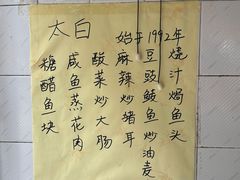 太白
始于1992年
烧汁焗鱼头
豆豉鲮鱼炒油麦
麻辣炒猪耳
酸菜炒大肠
咸鱼蒸花肉
糖醋鱼块